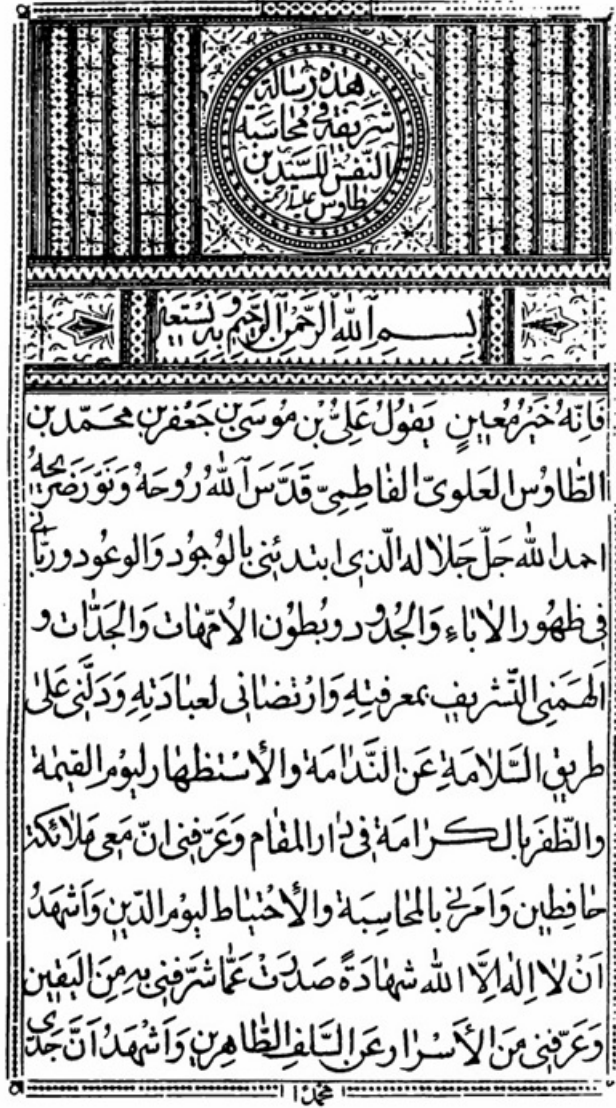 هذه رسالة
شريفة في محاسبة
النفس للسيد بن
طاوس عليه الرحمة
بِسمِ اللهِ الرَّحمٰنِ الرَّحيمِ وَبِهِ نَستَعين
فَاِنَّهُ خَيرُ مُعينٍ يَقولُ عَلِيُّ بْنُ مُوسَى بنِ جَعفَرِ بنِ محَمّدِ بنِ
الطّاوُسِ العَلَويّ الفاطِميّ قَدَّسَ اللهُ رُوحَهُ وَنَوَّرَ ضَريحَهُ
احمد الله جَلّ جَلاله الّذى ابتدئنى بالوجُود وَالوعُود وربّانى
فِى ظهُور الاباءِ وَالجُدُود وبُطُون الاُمّهات وَالجَدّات و
اَلهَمَنِى التّشريف بمعرفتِهِ وَارْتضانى لعبادَتِهِ وَدَلَّنِى عَلى
طريقِ السَّلامَةِ عَن النَّدامَة والأسْتظهار ليَومِ القيٰمة
والظّفَر بالكرامَة فى دار المقام وَعَرّفنى انّ مَعى مَلائكة
حافِظين وَامرنى بالمحاسبة والأحْتياط ليومِ الدّين وَاَشهَدُ
اَنْ لا اِلٰهَ اِلَّا الله شهادَةً صَدَرَتْ عَمّا شرّفنى به مِنَ اليَقين
وَعَرّفنِى مِنَ الأسْرار عَن السَّلفِ الطّاهِرينِ وَاَشْهَدُ اَنَّ جَدّى
محمد